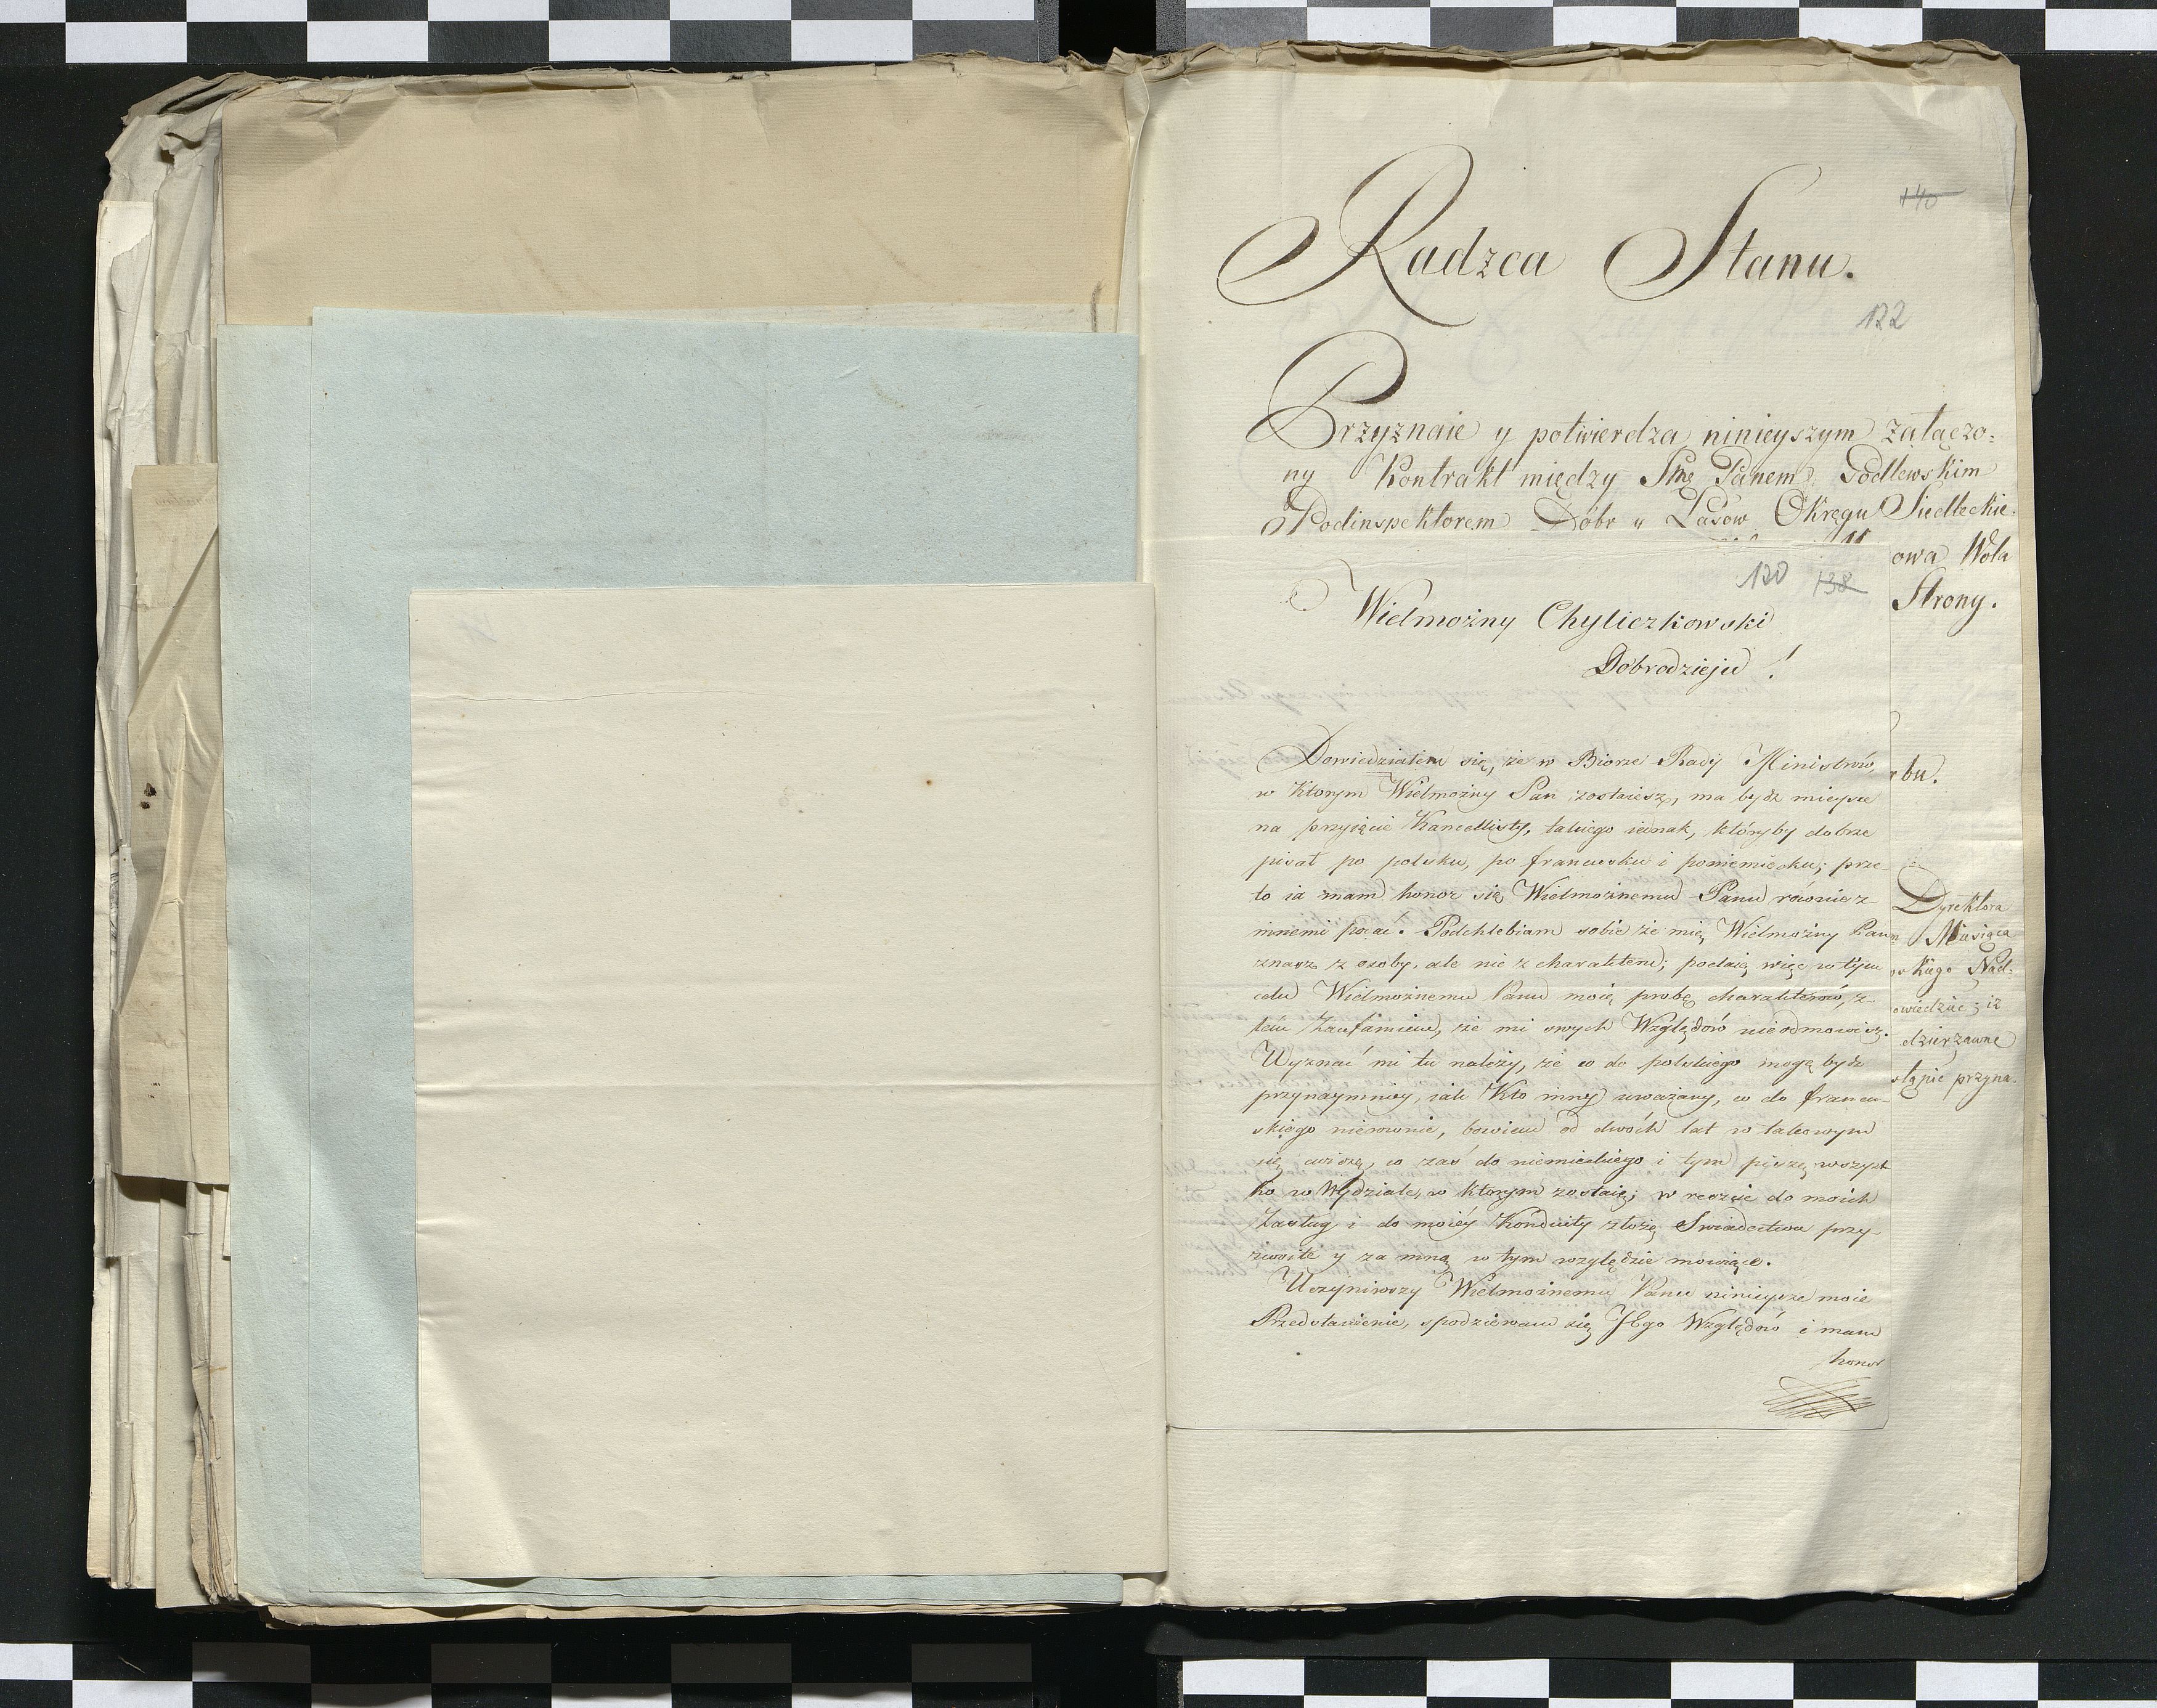 140
Radzca Stanu.
122
Przyznaie y potwierdza ninieyszym załączo:
ny Kontrakt między Jmę Panem Godlewskim
Podinspektorem Dóbr y Lasow Okręgu Siedleckie:
owa Wola
Strony.
bu.
Dyrektora
Miesiąca
skiego Nad:
owiedzac; iż
dzierzawne
stąpie przyna.
120 138
Wielmożny Chyliczkowski
Dobrodzieju!
Dowiedziałem się, że w Biorze Rady Ministrów,
w ktorym Wielmożny Pan zostaiesz, ma bydź mieysce
na przyięcie Kancellisty, takiego iednak, któryby dobrze
pisał po polsku, po francusku i poniemiecku; prze-
to ia mam honor się Wielmożnemu Panu równie z
innemi podać. Podchlebiam sobie że mię Wielmożny Pan
znasz z osoby, ale nie z charakteru; podaię więc w tym
celu Wielmożnemu Panu moię probę charakterów, z
tem Zaufaniem, że mi swych Względów nieodmowisz.
Wyznać mi tu należy, że co do polskiego mogę bydź
przynaymniey, iak Kto inny uważany, co do francu-
skiego nierownie, bowiem od dwóch lat w takowym
się ćwiczę, co zaś do niemieckiego i tym piszę wszyst
ko w Wydziale, w ktorym zostaię; w reszcie do moich
Zasług i do moiéy Konduity złożę Swiadectwa przy-
zwoite y za mną w tym względzie mowiące.
Uczyniwszy Wielmożnemu Panu ninieysze moie
Przedstawienie, spodziewam się Jego Względów i mam
honor